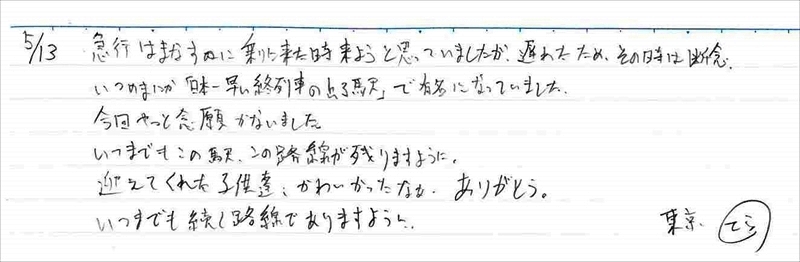 5/13 急行はまなすに乗りに来た時来ようと思っていましたが、遅れたため、その時は断念。
いつのまにか「日本一早い終列車の出る駅」で有名になっていました。
今回やっと念願かないました
いつまでもこの駅、この路線が残りますように。
迎えてくれた子供達、かわいかったなぁ。ありがとう。
いつまでも続く路線でありますように。
東京